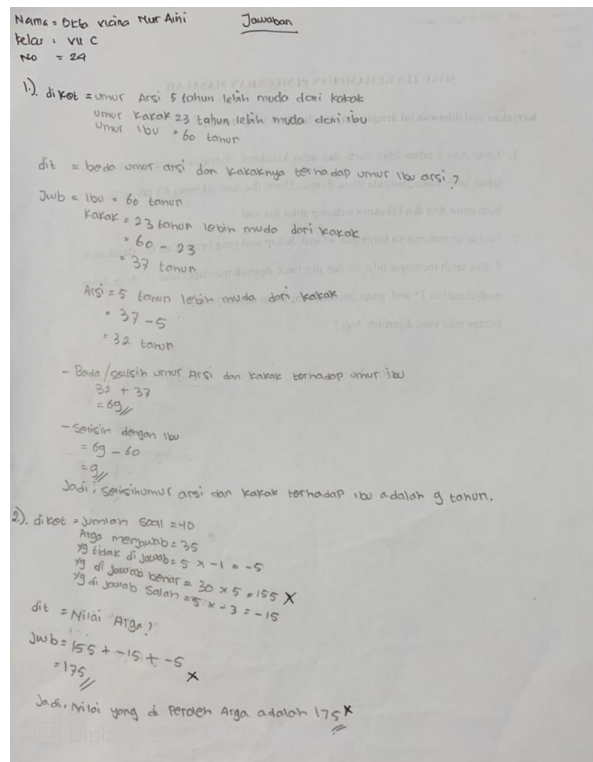 Nama = Okta viana Nur Aini Jawaban
kelas : VII C
No = 24
1). diket = umur Arsi 5 tahun lebih muda dari kakak
umur kakak 23 tahun lebih muda dari ibu
umur ibu = 60 tahun
dit = beda umur arsi dan kakaknya terhadap umur ibu arsi ?
Jwb = Ibu = 60 tahun
kakak = 23 tahun lebih muda dari kakak
= 60 - 23
= 37 tahun
Arsi = 5 tahun lebih muda dari kakak
= 37 - 5
= 32 tahun
- Beda/selisih umur Arsi dan kakak terhadap umur ibu
32 + 37
= 69 //
- Selisih dengan ibu
= 69 - 60
= 9 //
Jadi, selisih umur arsi dan kakak terhadap ibu adalah 9 tahun.
2). diket = jumlah soal = 40
Arga menjawab = 35
yg tidak di jawab = 5 x -1 = -5
yg di jawab benar = 30 x 5 = 155 X
yg di jawab salah = 5 x -3 = -15
dit = Nilai Arga ?
Jwb = 155 + -15 + -5
= 175 // X
Jadi, Nilai yang di Peroleh Arga adalah 175 // X